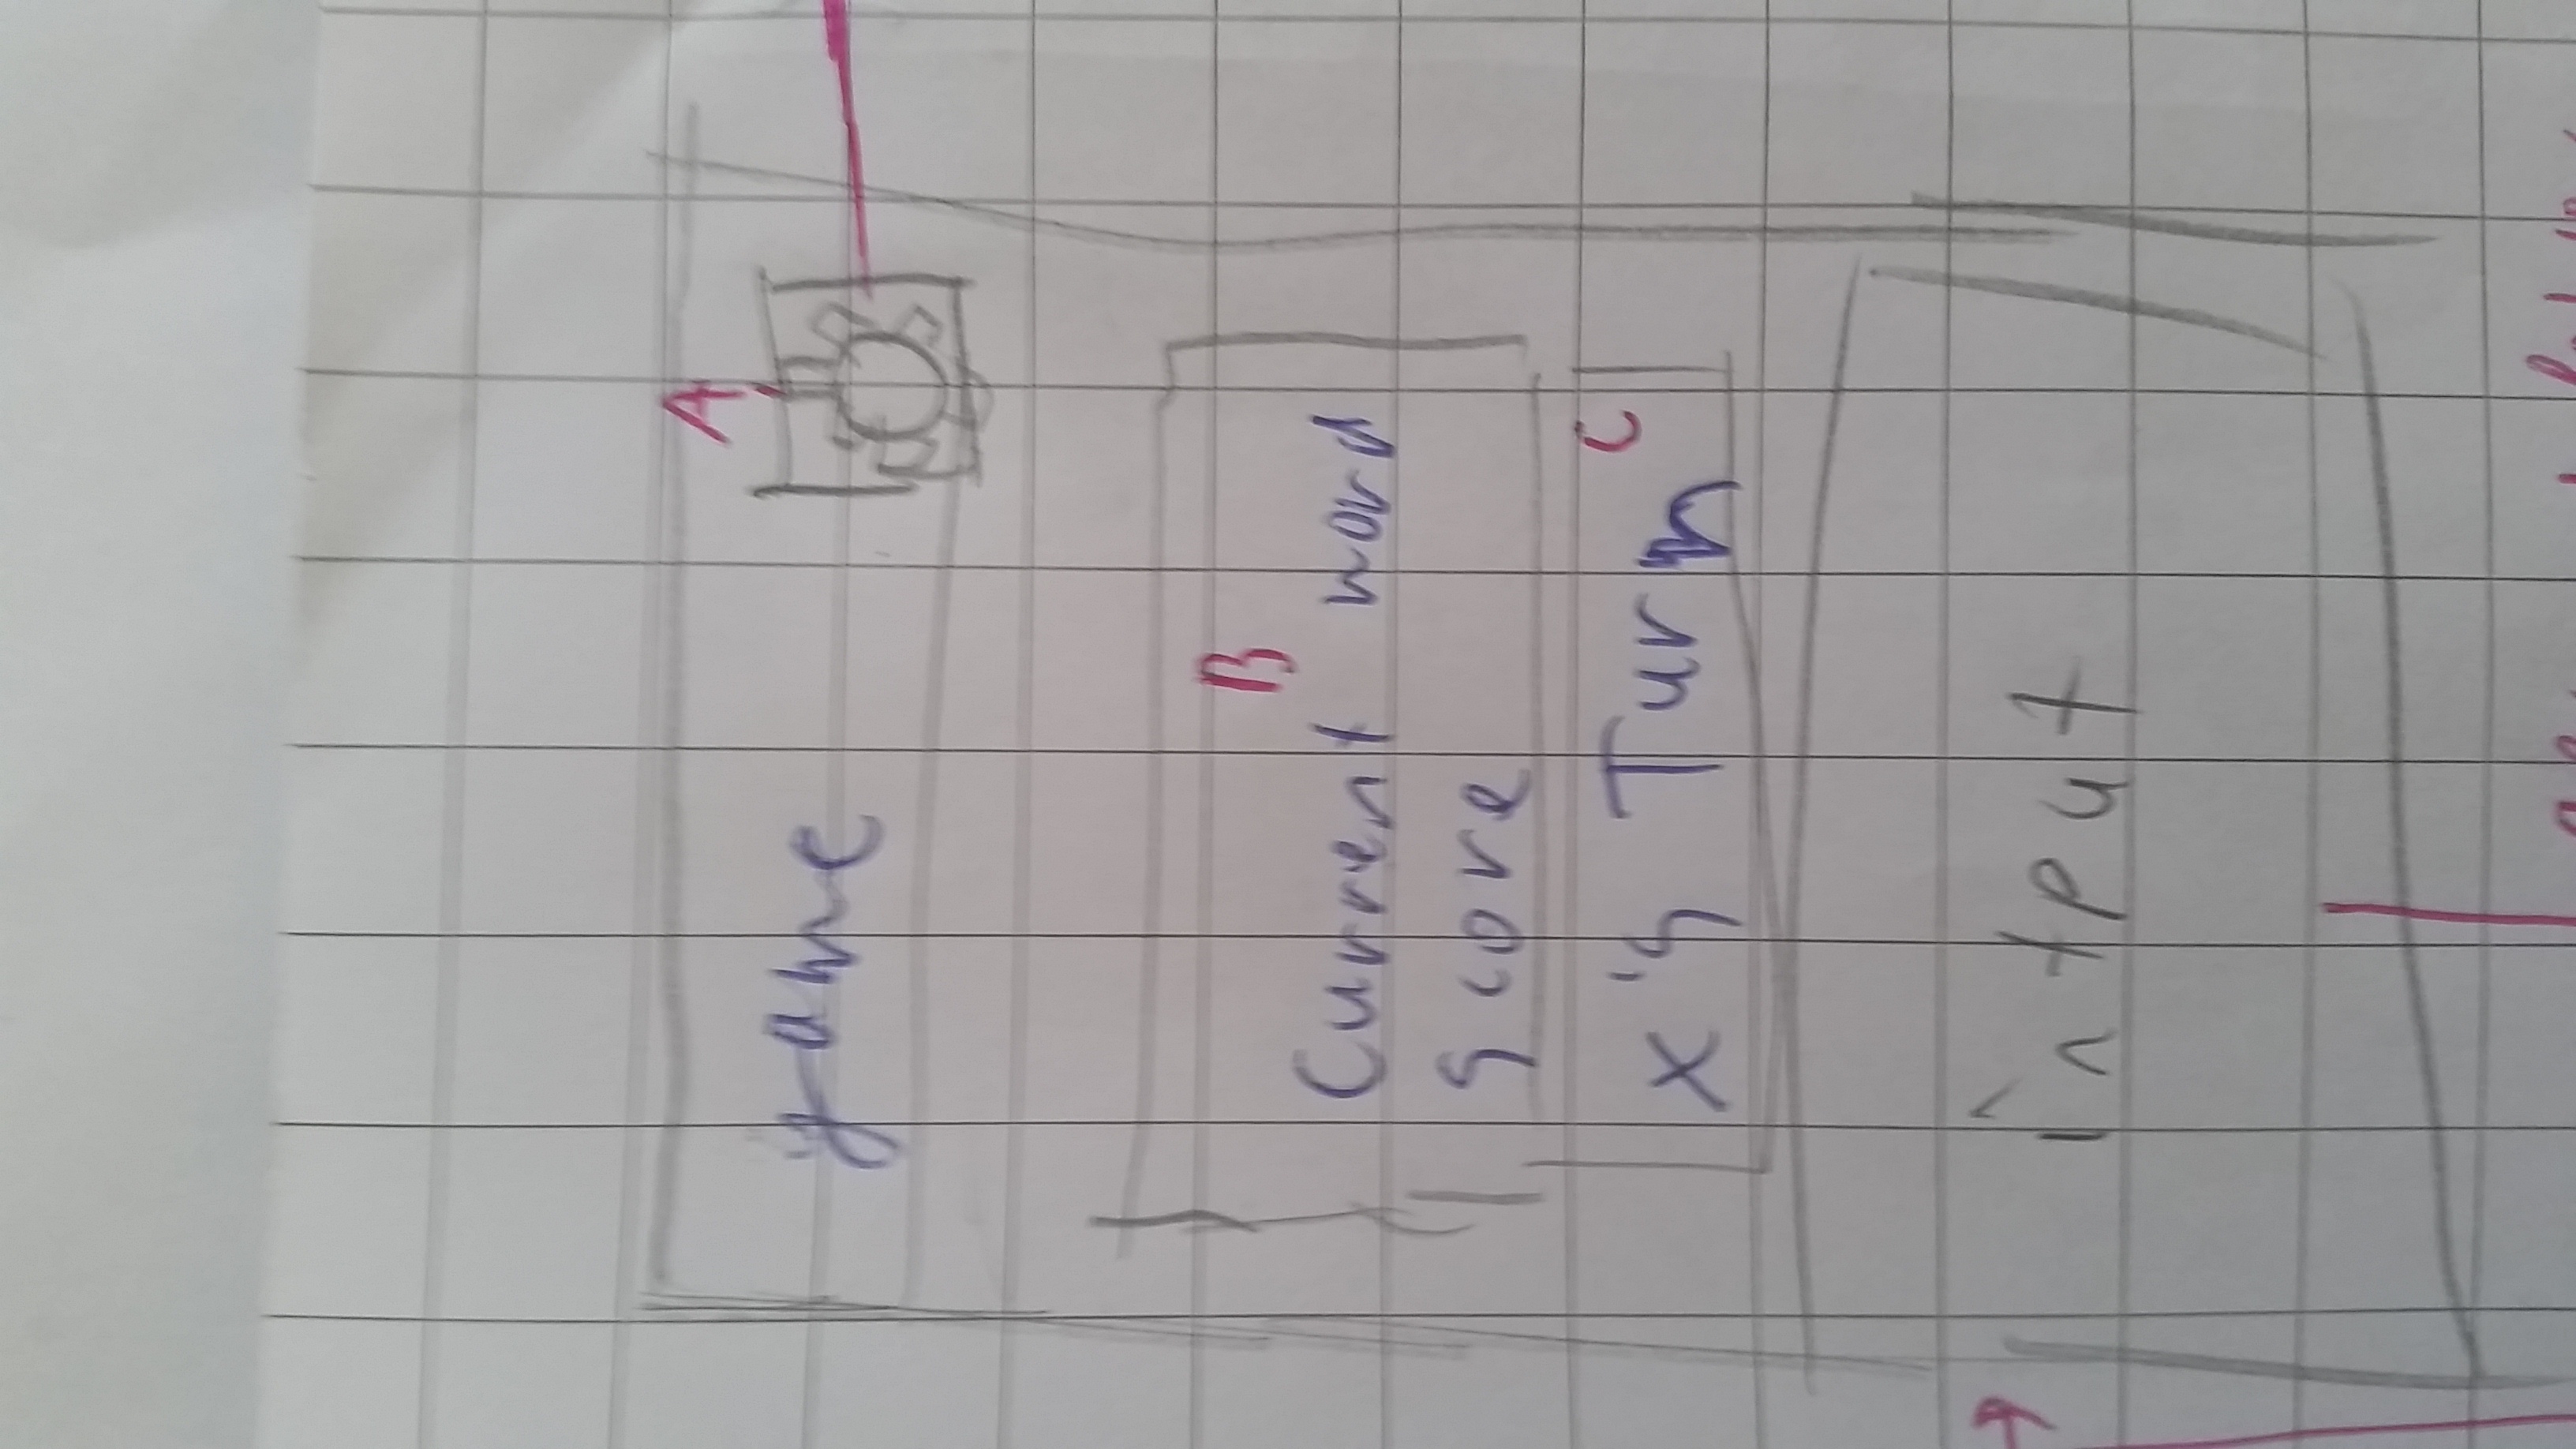 A
game
B
Current word
score
x's Turn
C
intput